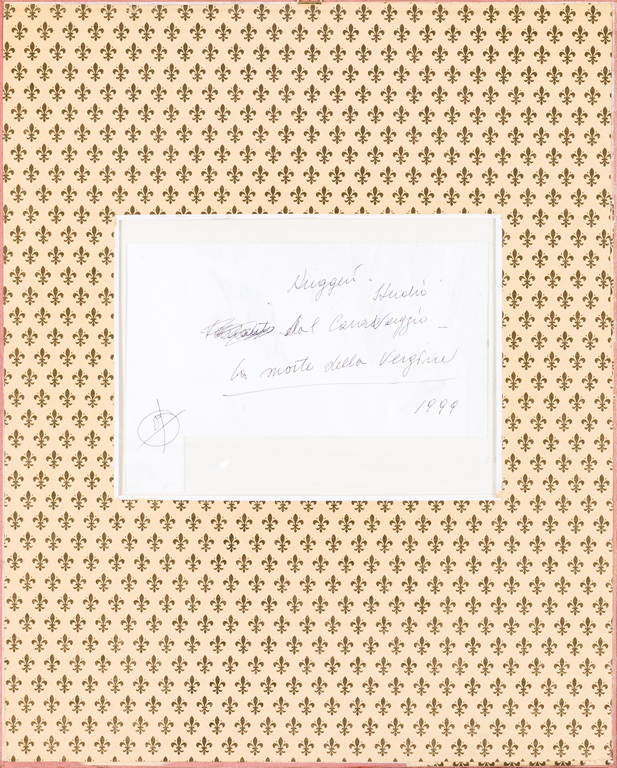 Ruggeri. Studio
dal Caravaggio -
la morte della Vergine
1999